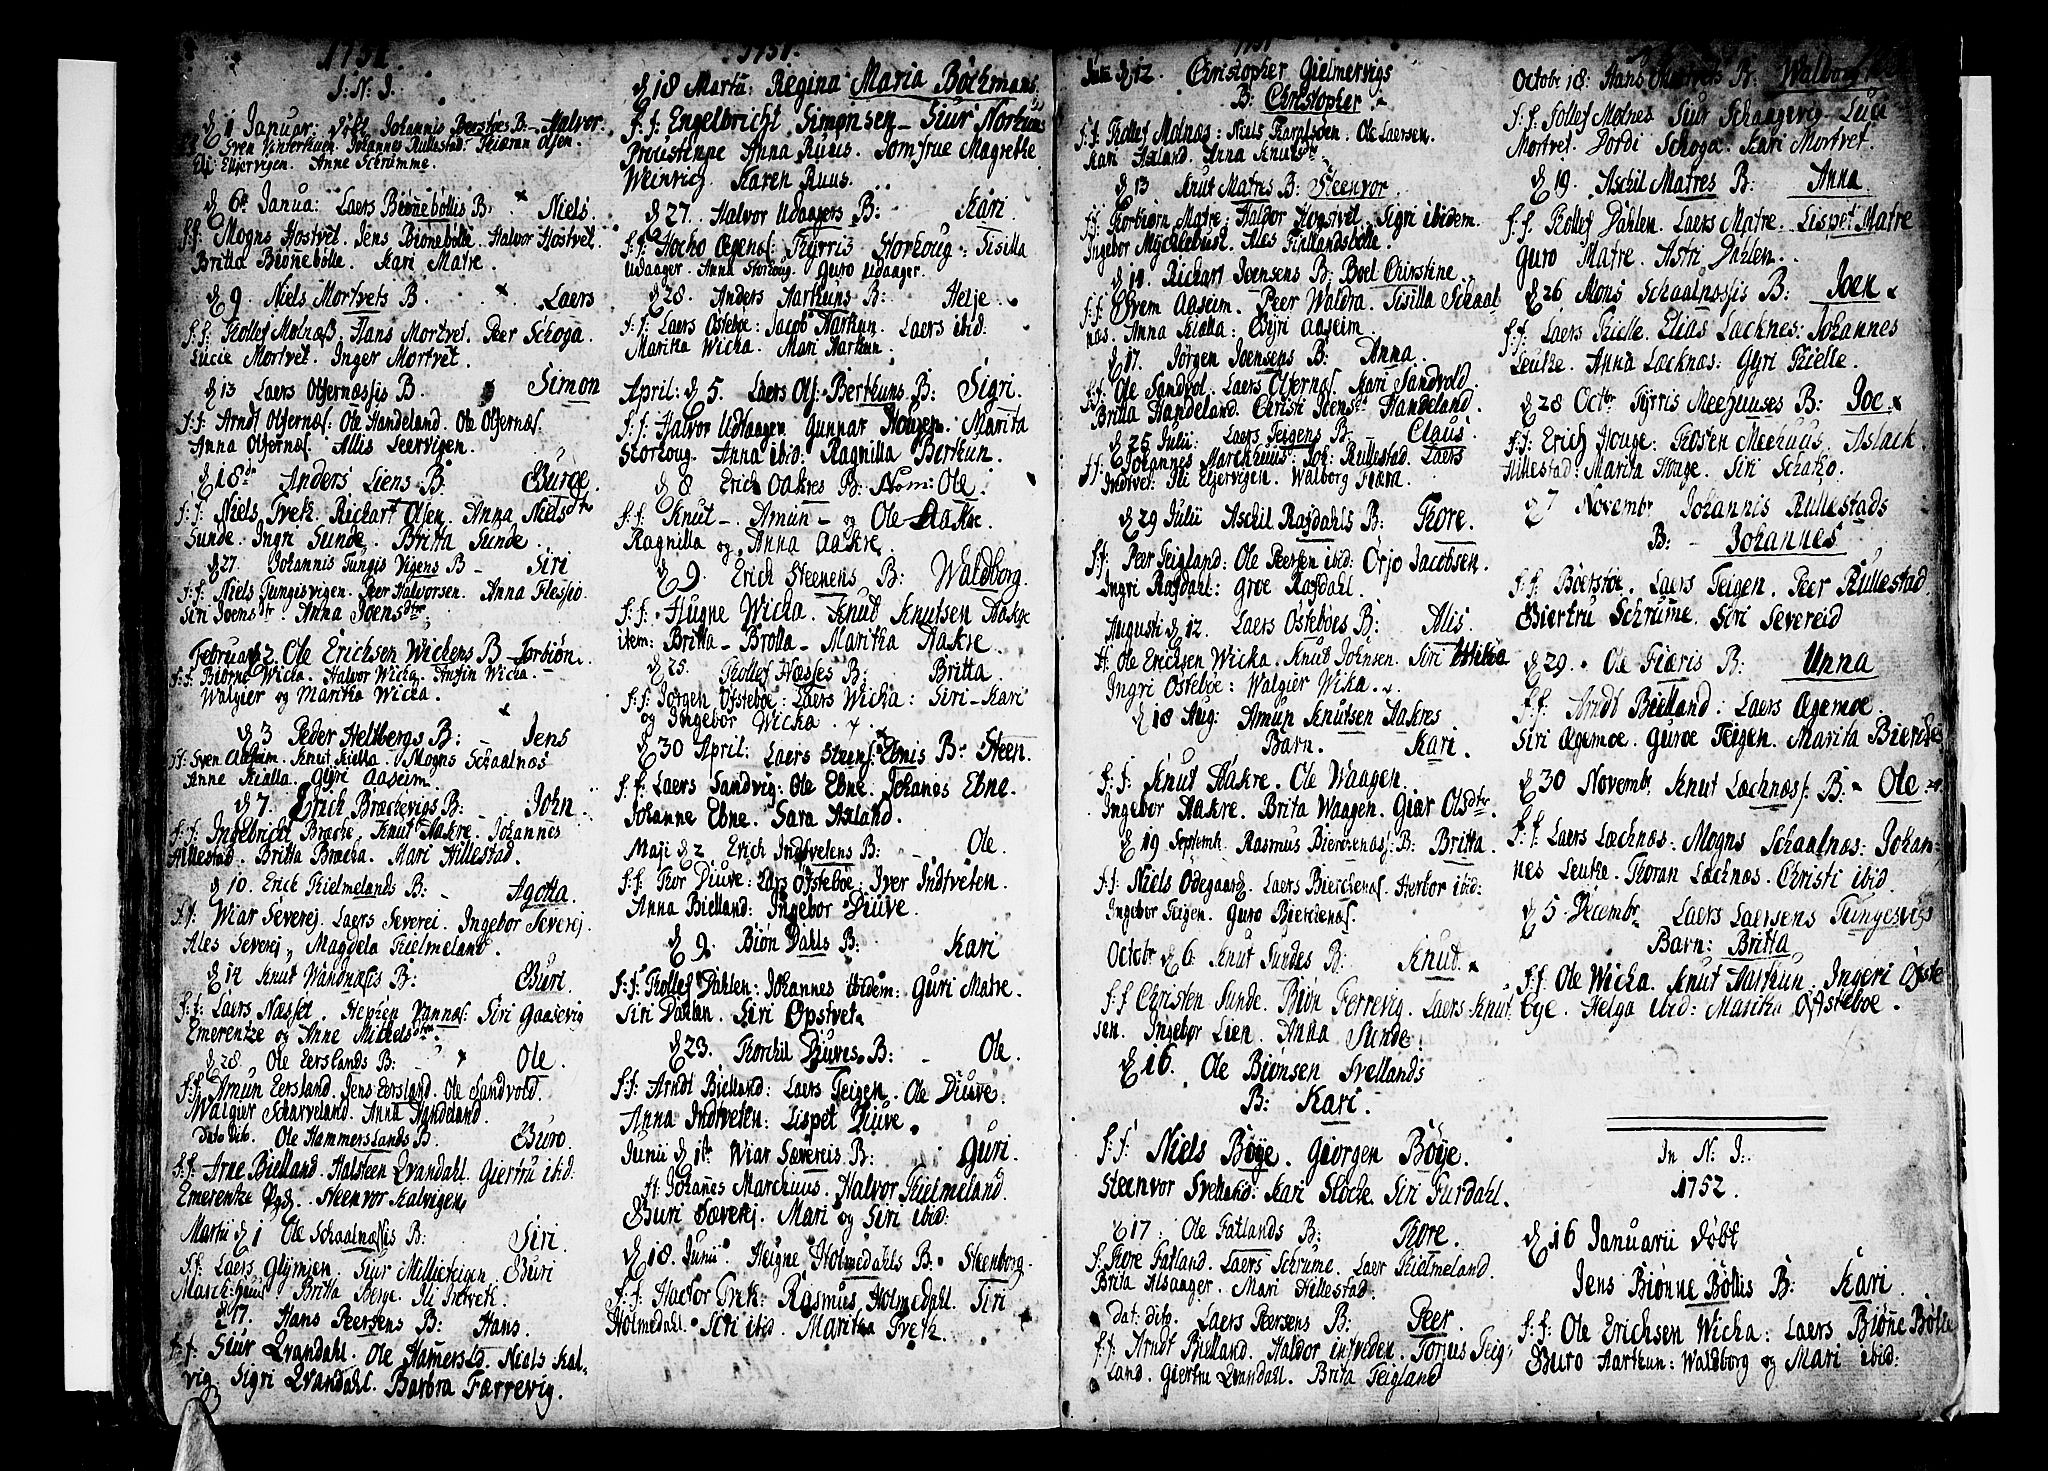 1751.
J: N: J.
d 1 Januar: døbt Johannis Berstøes B. Halvor
Sven Vinterhuun. Johannes Rullestad. Olsen.
Eli Eljervigen. Anne Schrumme.
d 6te Janua: Laers Biønebøllis B. Niels.
f:f: Mogns Hostvet. Jens Bionebølle. Halvor Hostvet.
Britta Biønebølle. Kari Matre.
d 9. Niels Mortvets B. Laers
f:f: Thollef Molnæs. Hans Mortvet. Peer Schoga.
Lucie Mortvet. Inger Mortvet.
d 13 Laers Olfernæssis B. Simon
f:f: Arndt Olfernæs. Ole Handeland. Ole Olfernæs.
Anna Olfernæs. Allis Leervigen.
d 18de Anders Liens B: Guroe.
f:f: Niels Træk. Rickart Olsen. Anna Nielsdtr
Sunde. Ingri Sunde. Britta Sunde.
d 27. Johannis Tungis Vigens B Siri
f:f: Niels Tungisvigen. Peer Halvorsen. Anna Flessio
Siri Joensdtr. Anna Joensdtr.
Februar d 2 Ole Erichsen Wickens B Torbiøn.
f:f: Biørne Wicka. Halvor Wicka. Anfin Wicha.
Walgier og Maritha Wicka.
d 3 Peder Heltbergs B: Jens
ff: Sven Aaseim. Knut Kiella. Mogns Schaalnæs
Anne Kialla. Gyri Aaseim.
d 7. Erich Brechevigs B: John.
f:f: Ingebricht Bræche. Knut Aakre. Johannes
Hillestad. Britta Bræcha. Mari Hillestad.
d 10. Erick Kielmelands B: Agotta
f:f: Wiar Severej. Laers Severei. Ingebor Severej.
Ales Severej, Magdela Kielmeland.
d 14 Knut Wandnæsis B: Guri.
f:f: Laers Næsset. Hepken Vannæs. Siri Gaasevig
Emerentze og Anne Mickelsdtr.
d 28. Ole Eerslands B: Ole.
f:f: Amun Eersland. Jens Eersland. Ole Sandvold.
Walgier Scharveland. Anna Handeland.
Dato dito. Ole Hammerslands B. Guro.
f:f: Arne Bielland. Halsteen Qvandahl. Giertru ibid:
Emerentze. Steenvor Kalvigen
Martii d 1 Ole Schaalnæssis B: Siri.
f:f. Laers Glymien. Siur Milliethigen. Guri
Marchhuus Britta Berge. Ili Indtvet.
d 17. Hans Peersens B: Hans.
f:f: Siur Qvandahl. Ole Hamersld. Niels Kal-
vig. Sigri Qvandahl. Barbra Færrevig.
1751.
d 18 Martii: Regina Maria Bøckmans
f:f: Engelbricht Simonsen Siur Norhuus
Proustinne Anna Ruus. Jomfrue Magrethe
Weinrich Karen Ruus.
d 27. Halvor Udaagers B: Kari
f:f: Hocho Ægenæs. Tyrris Storhoug: Sisilla
Udaager. Anna Storhoug. Guro Udaager.
d 28. Anders Aarthuns B: Helje.
f:f: Laers Ostebøe: Jacob Aarthun. Laers ibid:
Maritha Wicka. Mari Aarthun.
April: d 5. Laers Ols: Berthuns B: Sigri.
f:f: Halvor Udtaagen Gunnar Hougen. Marita
Storhoug. Anna ibid: Ragnilla Berthun.
d 8 Erich Oakres B: Nom: Ole.
f:f: Knut - Amun - og Ole Aakre.
Ragnilla og Anna Aakre.
d 9. Erich Steenens B: Waldborg.
f:f: Hugne Wicka. Knut Knutsen Aakre
item: Britta - Brotta - Maritha Aakre.
d 25. Thollef Næsses B: Britta
f:f: Jørgen Østebøe: Laers Wicka: Siri - Kari
og Ingebor Wicka.
d 30 April: Laers Steens: Ebnis B: Steen.
f:f: Laers Sandvig: Ole Ebne. Johanes Ebne.
Johanne Ebne. Sara Axland.
Maji d 2 Erich Indtvetens B: Ole.
f:f: Thor Diuve: Lars Østebøe. Iver Indtveten.
Anna Bielland: Ingebor Diuve.
d 9. Biøn Dahls B: Kari
f:f: Thollef Dahlen: Johannes ibidem: Guri Matre.
Siri Dahlen. Siri Opstvet.
d 23. Thorchil Diuves B: Ole.
f:f: Arndt Bielland: Laers Teigen. Ole Diuve.
Anna Indtveten: Lispet Diuve.
Junii d 1te Wiar Sævereis B: Guri.
ff. Johanes Marchuus. Halvor Kielmeland.
Guri Sæverej. Mari og Siri ibid:
d 18. Junii Heigne Holmedahls B: Steenborg.
f:f: Hactor Træk: Rasmus Holmedahl. Siri
Holmedahl. Siri ibid. Maritha Træk.
1751
d 12. Christopher Gielmervigs
B: Christopher
f:f. Thollef Molnæs: Niels Thorolsøen. Ole Laersen.
Kari Axland. Anna Knutsdtr
d 13 Knut Matres B: Steenvor.
f:f. Torbiørn Matre: Haldor Hopstvet. Sigri ibidem.
Ingebor Myckleбust. Ales Finlandsbølle.
d 14 Rickart Joensens B: Boel Chirstine.
f:f: Sven Aaseim. Peer Waldra. Sisilla Schaal
næs. Anna Kialla: Gyri Aaseim.
d 17. Jorgen Joensens B: Anna.
f:f: Ole Sandvol. Laers Olfernæs. Kari Sandvold.
Britta Handeland. Christi Joensdr Handeland.
d 25 Julii: Laers Teigens B: Claus
ff: Johannis Marckhuus. Joh: Rullestad. Laers
Indtvet. Ili Eljervigen. Walborg Fiæra.
d 29 Julii Aschil Rafdahls B: Thore.
f:f: Peer Teigland: Ole Peersen ibid: Orjo Jacobsen.
Ingri Rafdahl: Groe Rafdahl.
Augusti d 12. Laers Østebøes B: Alis.
ff. Ole Erichsen Wicka. Knut Johnsen. Siri Wicka
Ingri Ostebøe: Walgier Wika.
d 18 Aug: Amun Knutsen Aakres
Barn. Kari.
f:f: Knut Aakre. Ole Waagen.
Ingebor Aakre. Brita Waagen. Giør Olsdtr.
d 19 Septemb. Rasmus Bierchenæs: B: Britta.
f:f: Niels Odegaard. Laers Bierchenæs. Herbor ibid:
Ingebor Teigen. Guro Bierchenæs.
Octobr d 6. Knut Sundes B: Knut.
f:f Christen Sunde. Biøn Ferrevig. Laers Knut
sen. Ingebor Lien. Anna Sunde:
d 16. Ole Biønsen Svellands
B: Kari.
f:f: Niels Bøye. Giorgen Bøye.
Steenvor Svelland: Kari Slocke. Siri Furdahl.
d 17: Ole Fatlands B: Thore.
f: Thore Fatland. Laers Schrume. Laer Kielmeland.
Brita Alsaager. Mari Hillestad.
Dat: dito. Laers Peersens B: Peer
f:f: Arndt Bielland. Haldor indtveden. Torjus Teig-
land. Giertru Qvandahl. Brita Teigland
Octobr 18: Hans B. Waldborg
f:f: Tollef Molnes Siur Schaagevig Luci
Mortvet. Jordi Schoga. Kari Mortvet.
d 19. Aschil Matres B: Anna
f:f Thollef Dahlen. Laers Matre. Lispet Matre
Guro Matre. Astri Dahlen.
d 26 Mons Schaalnæssis B: Joen
f:f: Laers Kielle. Elias Lacknes: Johannes
Leuke. Anna Læcknæs: Gyri Kielle.
d 28 Octbr Tyrris Meehuuses B: Joe
f:f: Erich Houge: Thosten Meehuus, Aslack
Hillestad: Marita Houge. Siri Schako.
d 7 Novembr Johannis Rullestads
B: Johannes
f:f: Børstøe. Laers Teigen. Peer Rullestad
Giertru Schrume. Siri Severeid
d 29. Ole Fiæris B: Anna
f:f: Arndt Bielland: Laers Ægemoe.
Siri Ægemoe. Guroe Teigen. Marita Bierches
d 30 Novemb. Knut Læchnæs: B: Ole
f:f: Laers Læchnæs: Mogns Schaalnæs: Johan-
nes Leuke. Thoran Læchnæs. Christi ibid.
d 5 Decembr Laers Laersens Tungesvigs
Barn: Britta
f:f: Ole Wicka. Knut Aarthun. Ingeri Øste
bøe. Helga ibid: Maritha Østeboe.
In N: J:
1752.
d 16 Januarii døbt
Jens Biønne Bøllis B: Kari.
f:f: Ole Erichsen Wicka: Laers Biøne Bølle
Guro Aarthun: Waldborg og Mari ibid: